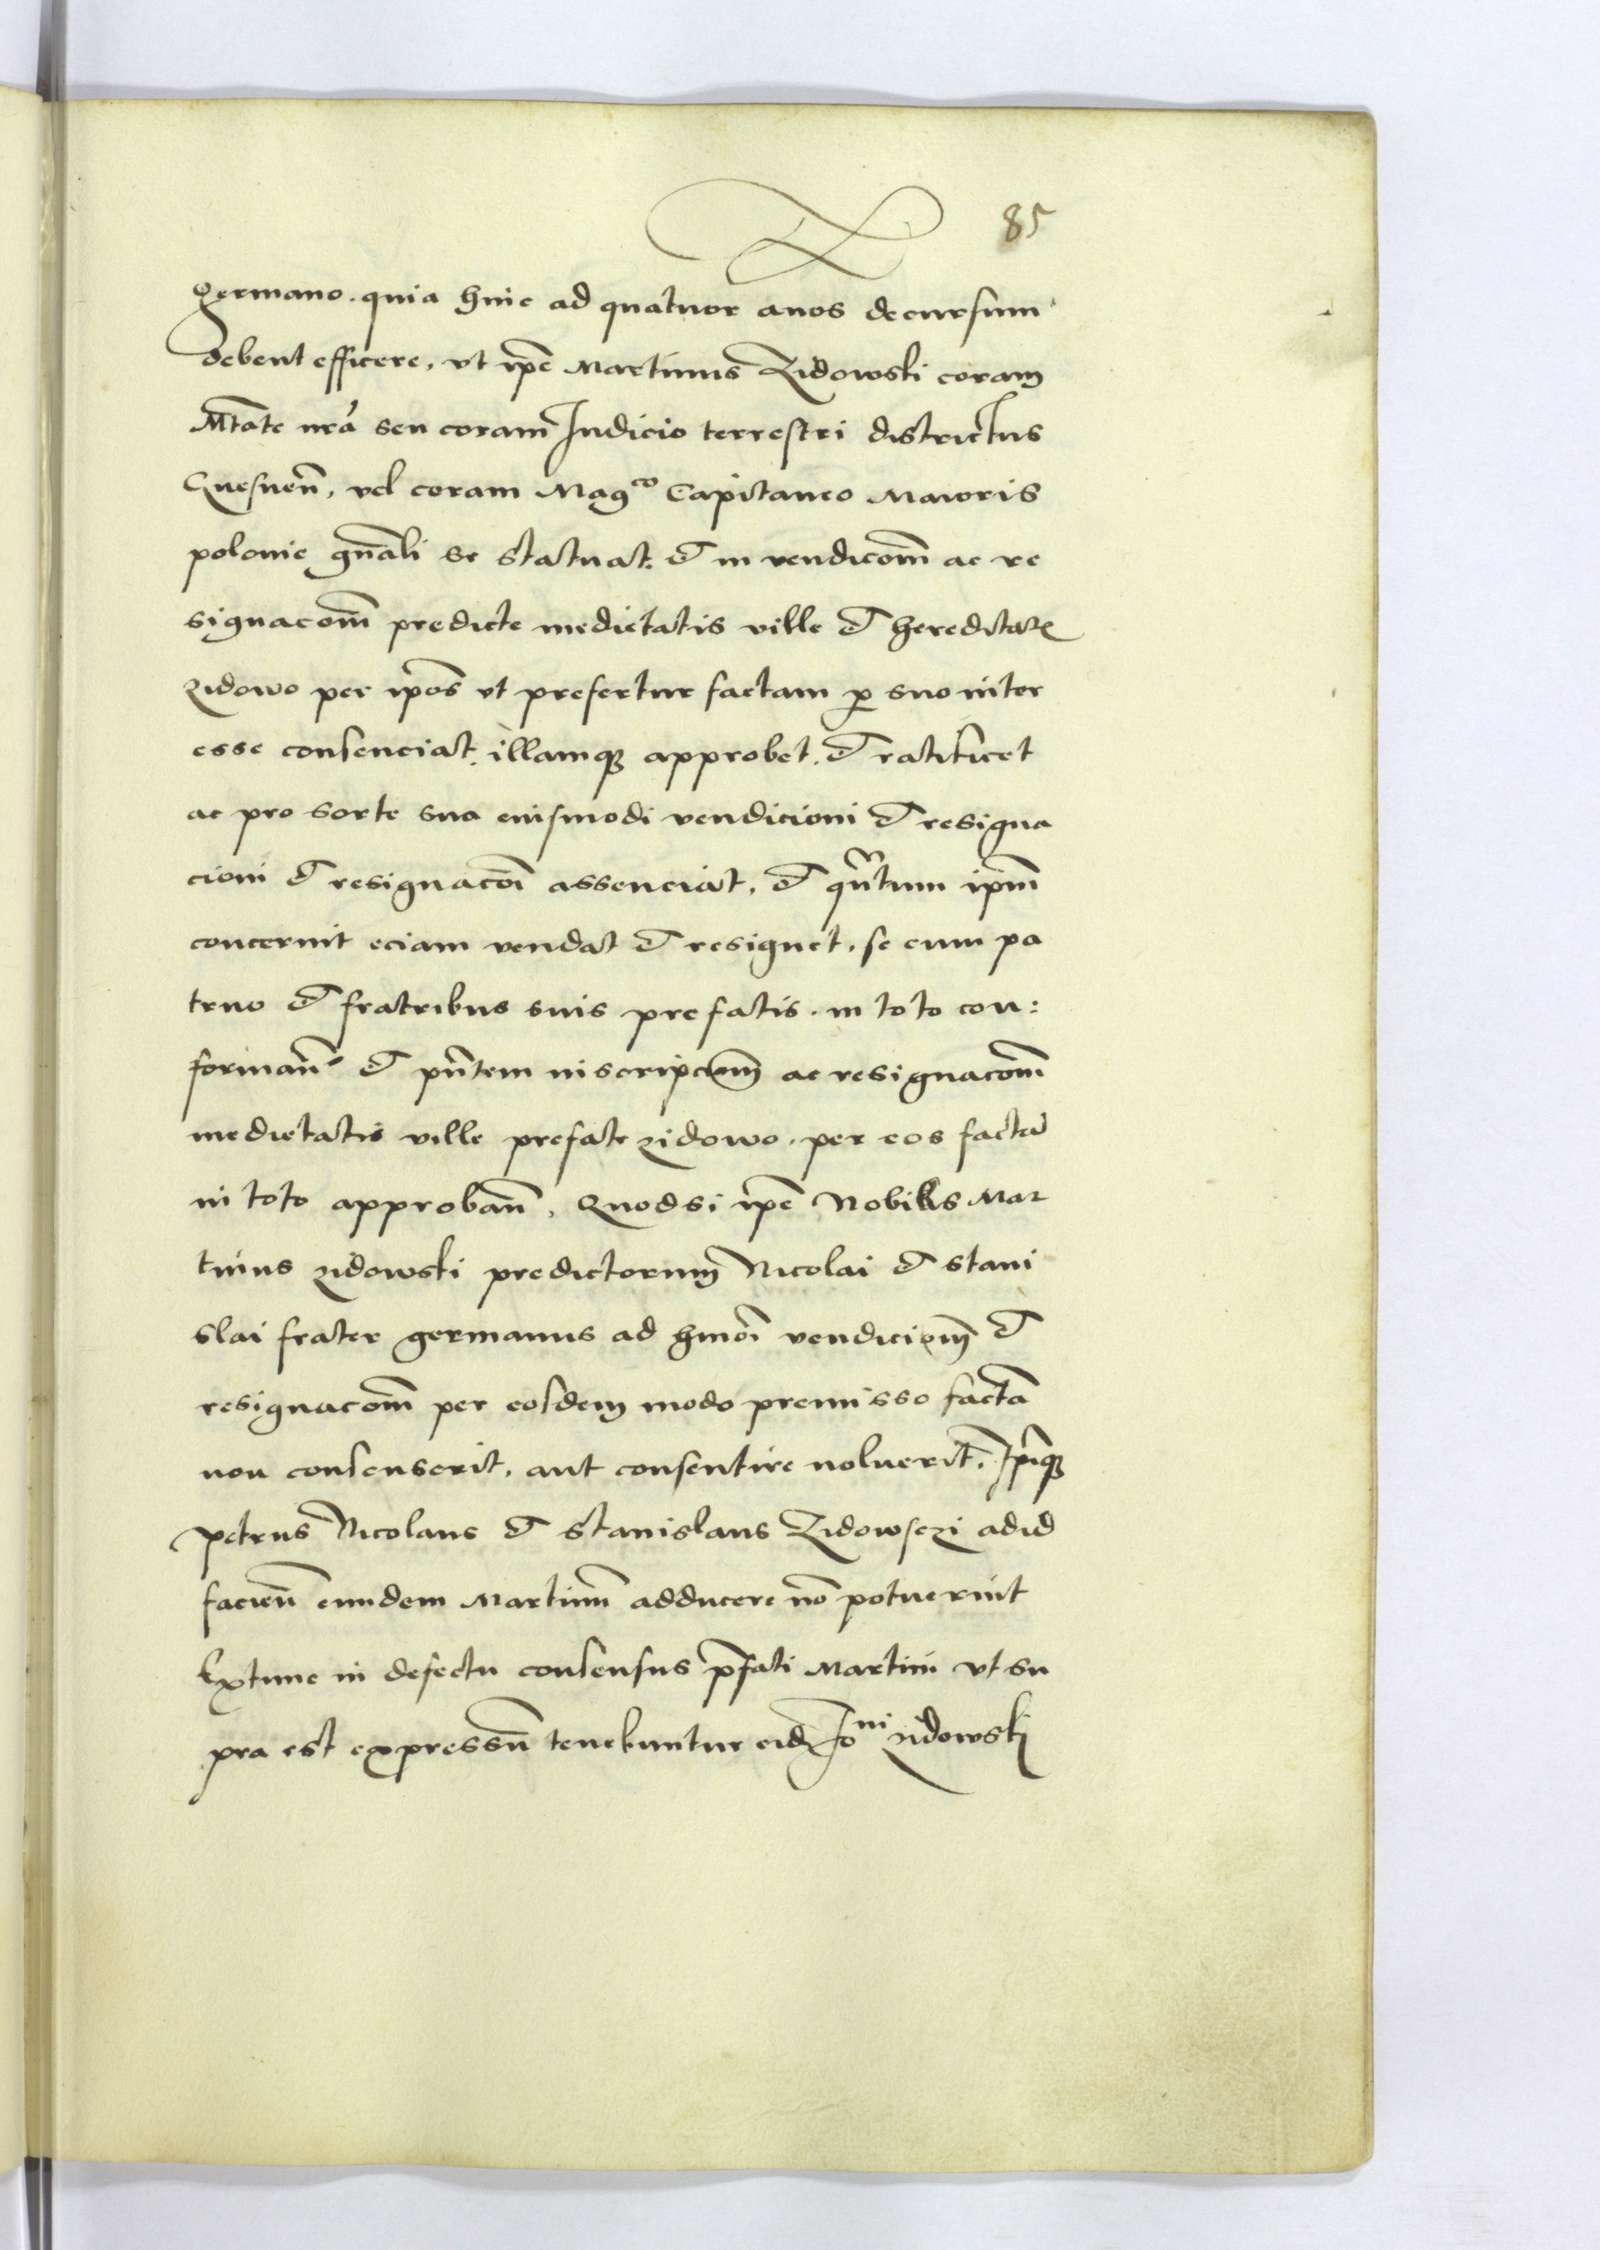 85
germano. quia hinc ad quatuor anos decursum
debent efficere, vt ip̃e Martinus Zidowski coram
Mtãte nrã seu coram Iudicio terrestri districtus
Gnesneñ, vel coram Mag^co Capitaneo Maioris
polonie gñali se statuat. et in vendicom̃ ac re
signacom̃ predicte medietatis ville et hereditatis
zidowo per ip̃os vt prefertur factam p suo inter
esse consenciat. illamq3 approbet. et ratificet
ac pro sorte sua eiusmodi vendicioni et resigna
cioni et resignacõi assenciat, et qũtum ip̃m
concernit eciam vendat et resignet. se cum pa
truo et fratribus suis prefatis. in toto con:
formañ et pñtem inscripciom̃ ac resignacom̃
medietatis ville prefate zidowo. per eos factã
in toto approbañ, Quodsi ip̃e Nobilis Mar
tinus zidowski predictorum Nicolai et stani
slai frater germanus ad hmõi vendiciom̃ et
resignacom̃ per eosdem modo premisso factã
non consenserit, aut consentire noluerit, Ip̃iq3
petrus Nicolaus et Stanislaus Zidowsczi ad id
facieñ eundem Martinũ adducere nõ potuerint
Extunc in defectu consensus p̃fati Martini vt su
pra est expressũ tenebuntur eidẽ Io^ni zidowski